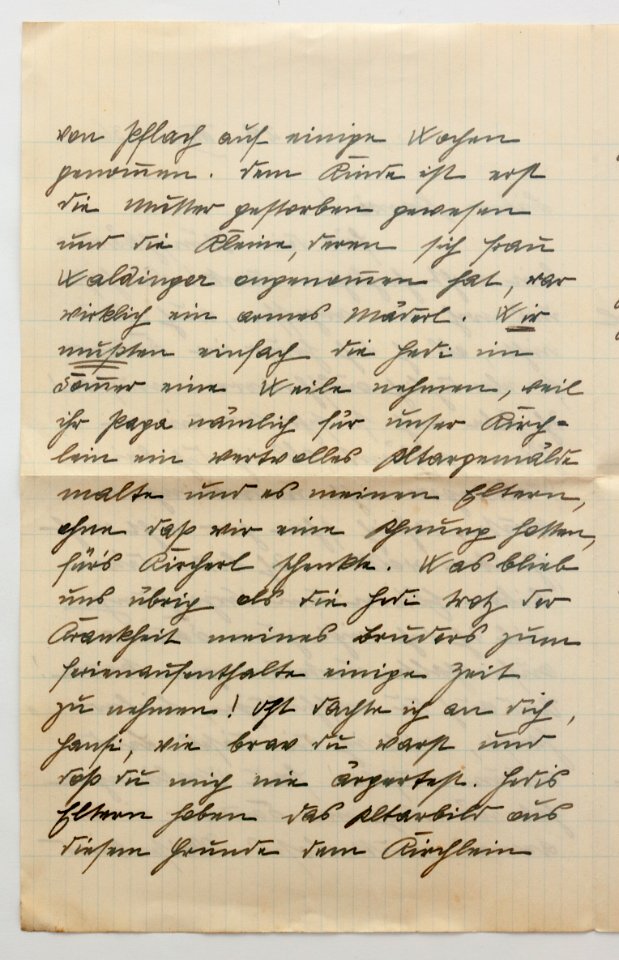 von Pflach auf einige Wochen
genommen. Dem Kinde ist erst
die Mutter gestorben gewesen
und die Kleine, deren sich Frau
Waldinger angenommen hat, war
wirklich ein armes Mäderl. Wir
mußten einfach die Hedi im
Sommer eine Weile nehmen, weil
ihr Papa nämlich für unser Kirch-
lein ein wertvolles Altargemälde
malte und es meinen Eltern,
ohne daß wir eine Ahnung hatten,
für's Kircherl schenkte. Was blieb
uns übrig als die Hedi trotz der
Krankheit meines Bruders zum
Ferienaufenthalte einige Zeit
zu nehmen! Oft dachte ich an dich,
Hansi, wie brav du warst und
daß du mich nie ärgertest. Hedis
Eltern haben das Altarbild aus
diesem Grunde dem Kirchlein